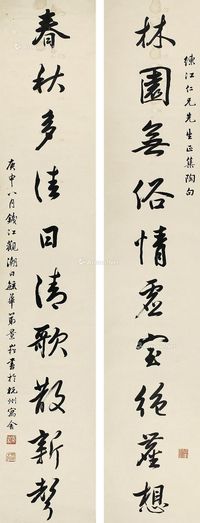 練江仁兄先生正集陶句
林園無俗情虛室絕塵想
春秋多佳日清歌散新聲
庚申八月錢江觀潮日
書於杭州寓舍